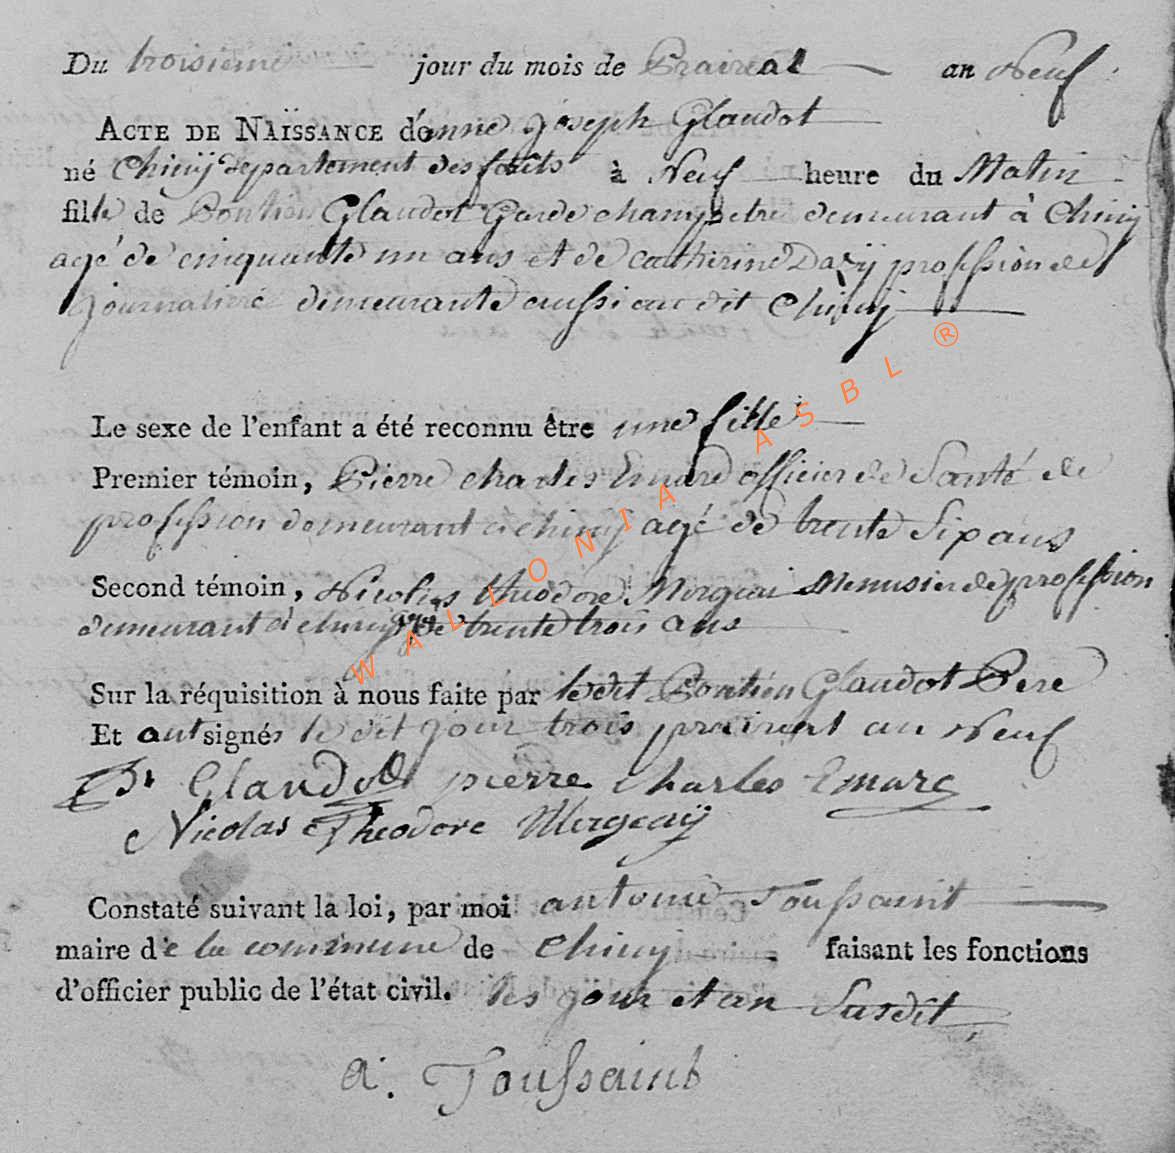 Du troisieme jour du mois de Prairial an Neuf
ACTE DE NAÏSSANCE d'anne Joseph Glaudot
né Chiny departement des forêts à Neuf heure du Matin
fille de Pontien Glaudot Garde champetre demeurant à Chiny
agé de cinquante un ans et de catherine Dasÿ profession de
journaliere demeurante aussi au dit Chiny
Le sexe de l'enfant a été reconnu être une fille
Premier témoin, Pierre charles Emare officier de Santé de
profession demeurant a chiny agé de trente Six ans
Second témoin, Nicolas théodore Mergeai Menusier de profession
demeurant à chiny agé de trente trois ans
Sur la réquisition à nous faite par le dit Pontien Glaudot Pere
Et ont signés le dit jour trois prairial an Neuf
Glaudot pierre Charles Emare
Nicolas Theodore Mergeaÿ
Constaté suivant la loi, par moi antoine Toussaint
maire de la commune de Chiny faisant les fonctions
d'officier public de l'état civil. les jour et an Susdit
a. Toussaint
WALLONIA ASBL ®